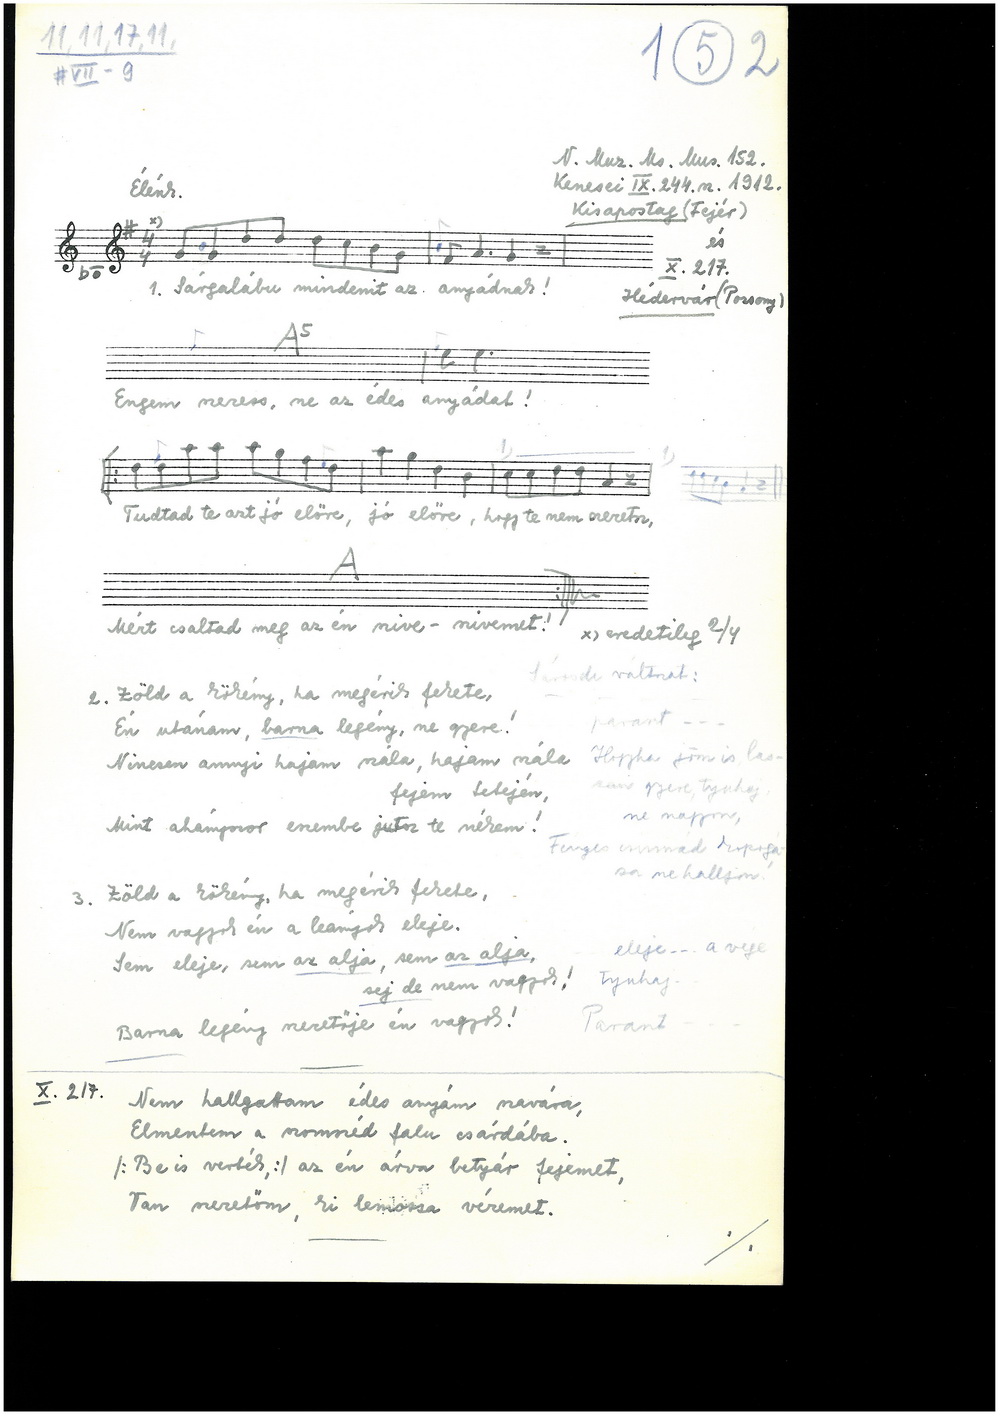 11, 11, 17, 11,
# VII - 9
1 5 2
N. Muz. Ms. Mus. 152.
Kenesei IX. 244. sz. 1912.
Kisapostag (Fejér)
és
X. 217.
Hédervár (Pozsony)
Élénk.
x)
4/4
1. Sárgalábu mindenit az anyádnak!
A5
Engem szeress, ne az édes anyádat!
1)
1)
Tudtad te azt jó előre, jó előre, hogy te nem szeretsz,
A
Mért csaltad meg az én szive - szivemet!
x) eredetileg 2/4
2. Zöld a kökény, ha megérik fekete,
Én utánam, barna legény, ne gyere!
Nincsen annyi hajam szála, hajam szála
fejem tetején,
Mint ahányszor eszembe jutsz te nékem!
váltzat:
parant - - -
Hogyha jösz is, las-
san gyere, tyuhaj,
ne nagyon,
kopogá-
sa ne halljon!
3. Zöld a kökény, ha megérik fekete,
Nem vagyok én a leányok eleje.
Sem eleje, sem az alja, sem az alja,
sej de nem vagyok!
Barna legény szeretője én vagyok!
eleje - - - a vége
tyuhaj - -
Parant - - -
X. 217.
Nem hallgattam édes anyám szavára,
Elmentem a szomszéd falu csárdába.
/: Be is verték, :/ az én árva betyár fejemet,
Van szeretőm, ki lemossa véremet.
./.